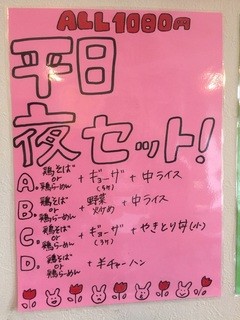 ALL1080円
平日
夜セット!
A. 鶏そば or 鶏らーめん + ギョーザ(3ケ) + 中ライス
B. 鶏そば or 鶏らーめん + 野菜炒め + 中ライス
C. 鶏そば or 鶏らーめん + ギョーザ(3ケ) + やきとり丼(小)
D. 鶏そば or 鶏らーめん + 半チャーハン